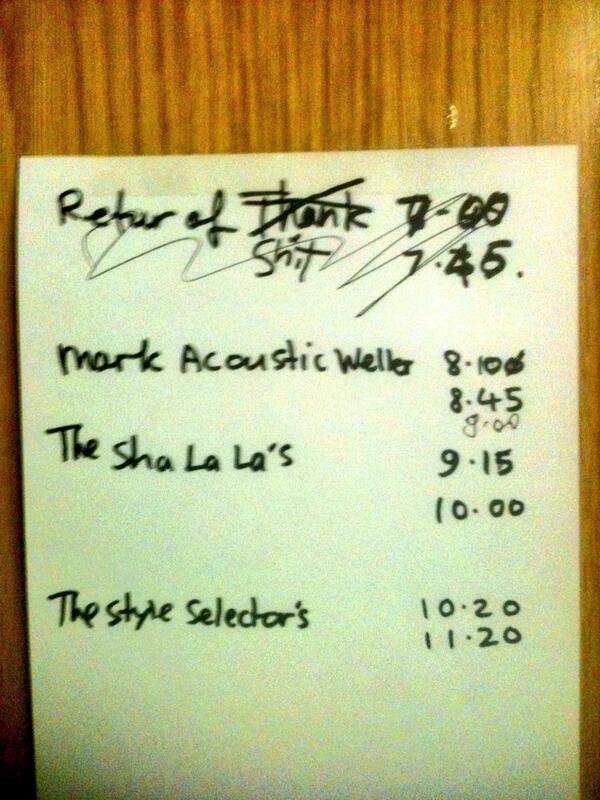 Retur of Thank 7-00
Shit 7.45.
Mark Acoustic Weller 8.10
8.45
9.00
The Sha La La's 9.15
10.00
The Style Selector's 10.20
11.20